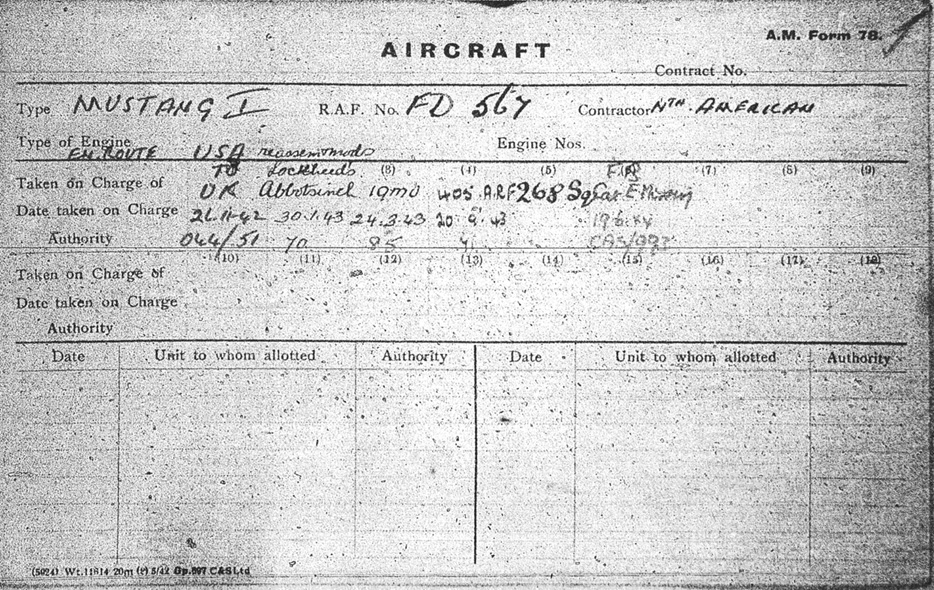 A.M. Form 78.
AIRCRAFT
Contract No.
Type MUSTANG I R.A.F. No. FD 567 Contractor NTH. AMERICAN
Type of Engine Engine Nos.
EN. ROUTE USA reassem mods
TO Lockheeds (3) (4) (5) (7) (8) (9)
Taken on Charge of UK Abbotsinch 19 MU 405 A.R.F 268 Sq
Date taken on Charge 26.11.42 30.1.43 24.3.43 20 9.43 19.6.44
Authority 044/51 70 85 41
(10) (11) (12) (13) (14) (15) (16) (17) (18)
Taken on Charge of
Date taken on Charge
Authority
Date Unit to whom allotted Authority Date Unit to whom allotted Authority
(5024) Wt. 11614 20m (2) 5/42 Gp.697 C&S Ltd